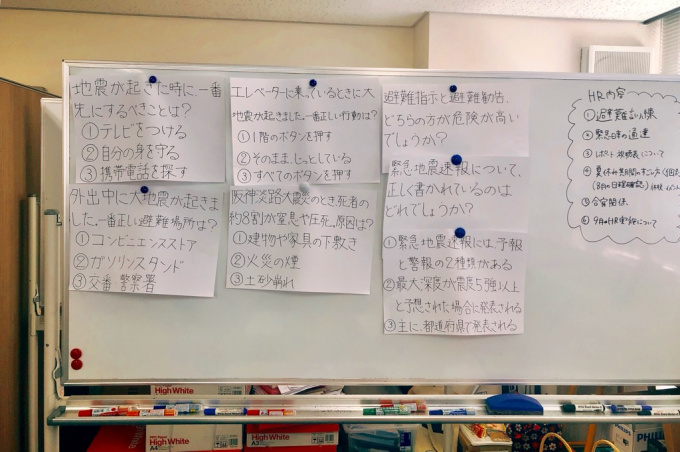 地震が起きた時に、一番
先にするべきことは?
①テレビをつける
②自分の身を守る
③携帯電話を探す
エレベーターに乗っているときに大
地震が起きました。一番正しい行動は?
①1階のボタンを押す
②そのままじっとしている
③すべてのボタンを押す
避難指示と避難勧告、
どちらの方が危険が高い
でしょうか?
外出中に大地震が起きま
した。一番正しい避難場所は?
①コンビニエンスストア
②ガソリンスタンド
③交番 警察署
阪神淡路大震災のとき死者の
約8割が窒息や圧死。原因は?
①建物や家具の下敷き
②火災の煙
③土砂崩れ
緊急地震速報について、
正しく書かれているのは
どれでしょうか?
①緊急地震速報には、予報
と警報の2種類がある
②最大深度が震度5強以上
と予想された場合に発表される
③主に、都道府県で発表される
HR内容
①避難訓練
②緊急日本の
③について
④夏休み
(8月の日程確認)
⑤合宿関係
⑥9月のHR実施について
High White
High White
A4
High White
A4
PHIL